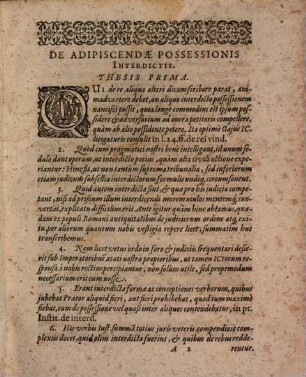 DE ADIPISCENDÆ POSSESSIONIS
INTERDICTIS.
THESIS PRIMA.
QUI de re aliqua alteri dicam scribere parat, ani-
madvertere debet, an aliquo interdicto possessionem
nancisci possit, qua longe commodius est ipsum possi-
dere & adversarium ad onera petitoris compellere,
quàm ab alio possidente petere. Ita optimè Cajus IC.
litigaturis consulit in l. 24. ff. de rei vind.
2. Quod cum pragmatici nostri bonè intelligant, id unum se-
dulò dant operam, ut interdicto potius, quàm abs civili actione expe-
riantur: Hinc sit, ut non tantùm suprema tribunalia, sed inferiorum
etiam judicum subsellia interdictorum formulis undiq; consonent.
3. Quid autem interdicta sint, & qua pro his judicia compe-
tant, nisi ad priscum illum interdicendi morem oculos mentemq; con-
vertas, explicatu difficillimum erit. Anitetur quidem hinc adumo, quod
dam ex populi Romani antiquitatibus de judiciorum ordine atq; exi-
tu, per aliorum quantum nobis vestigia repere licet; summatim huc
transferibemus.
4. Nam licet vetus ordo in foro & judiciis frequentari desie-
rit sub Imperatoribus ætati nostræ propioribus, ut tamen ICtorum re-
sponsa à nobis rectius percipiantur, non solum utile, sed propemodum
necessarium erit cum nosse.
5. Erant interdicta formæ ac conceptiones verborum, quibus
jubebat Prætor aliquid fieri, aut fieri prohibebat, quod tum maximè
fiebat, cum de possessione vel quasi inter aliquos contendebatur, in pr.
Instit. de interd.
6. His verbis Iust. summa totius juris veteris compendiosè com-
plexus docet, quid olim interdicta fuerint, & quibus de rebus redde-
A 2 rentur.